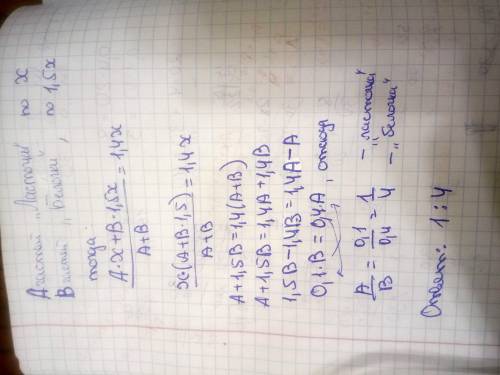 А частей "Ласточки" по x
В частей "Белочки", по 1,5x
тогда
A·x+B·1,5x / A+B = 1,4x
x(A+B·1,5) / A+B = 1,4x
A+1,5B=1,4(A+B)
A+1,5B=1,4A+1,4B
1,5B-1,4B=1,4A-A
0,1·B=0,4·A, откуда
A/B = 0,1/0,4 = 1/4 - "ласточки" - "белочки"
Ответ: 1:4